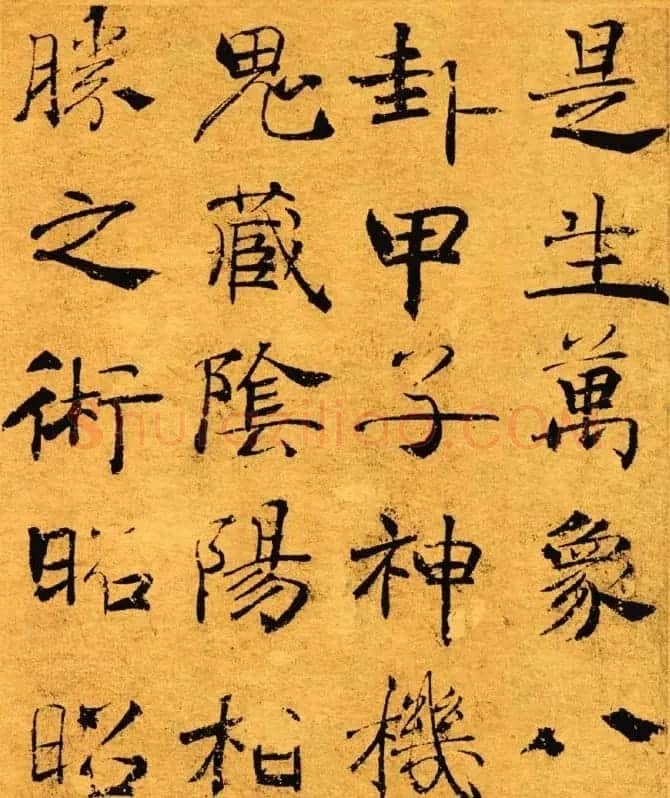 是生萬象八
卦甲子神機
鬼藏陰陽相
勝之術昭昭
shufaziliao.com